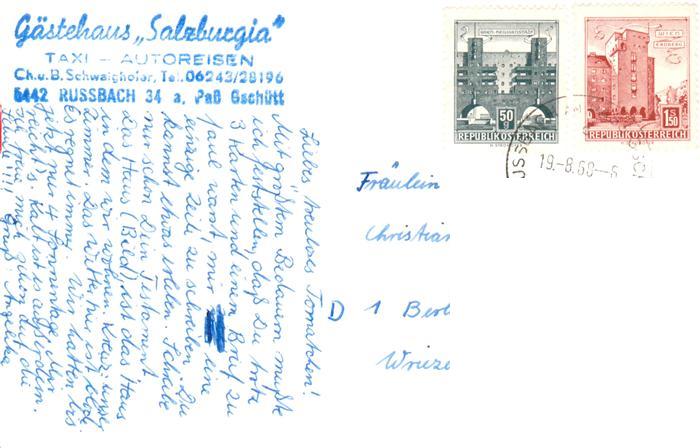 Gästehaus „Salzburgia"
TAXI – AUTOREISEN
Ch. u. B. Schwaighofer, Tel. 06243/28196
5442 RUSSBACH 34 a. Paß Gschütt
Liebes, treuloses Tomatchen!
Mit größtem Bedauern mußte
ich feststellen, daß Du trotz
3 Karten und einem Brief zu
faul warst, mir eine
einzige Zeile zu schreiben. Du
kannst etwas erleben. Schreibe
nur schon Dein Testament.
Das Haus (Bild) ist das Haus
in dem wir wohnen. Kreuz: unser
Zimmer. Das Wetter hier ist blöd.
Es regnet immer. Wir hatten bis
jetzt nur 4 Sonnentage. Mir
reicht's. Kalt ist es außerdem.
Ich freue mich schon auf die
Gruß Angelika
WIEN-HEILIGENSTADT
50
REPUBLIK ÖSTERREICH
WIEN
ERDBERG
1.50
REPUBLIK ÖSTERREICH
19.-8.68
Fräulein
Christian
D 1 Berl
Wrieze